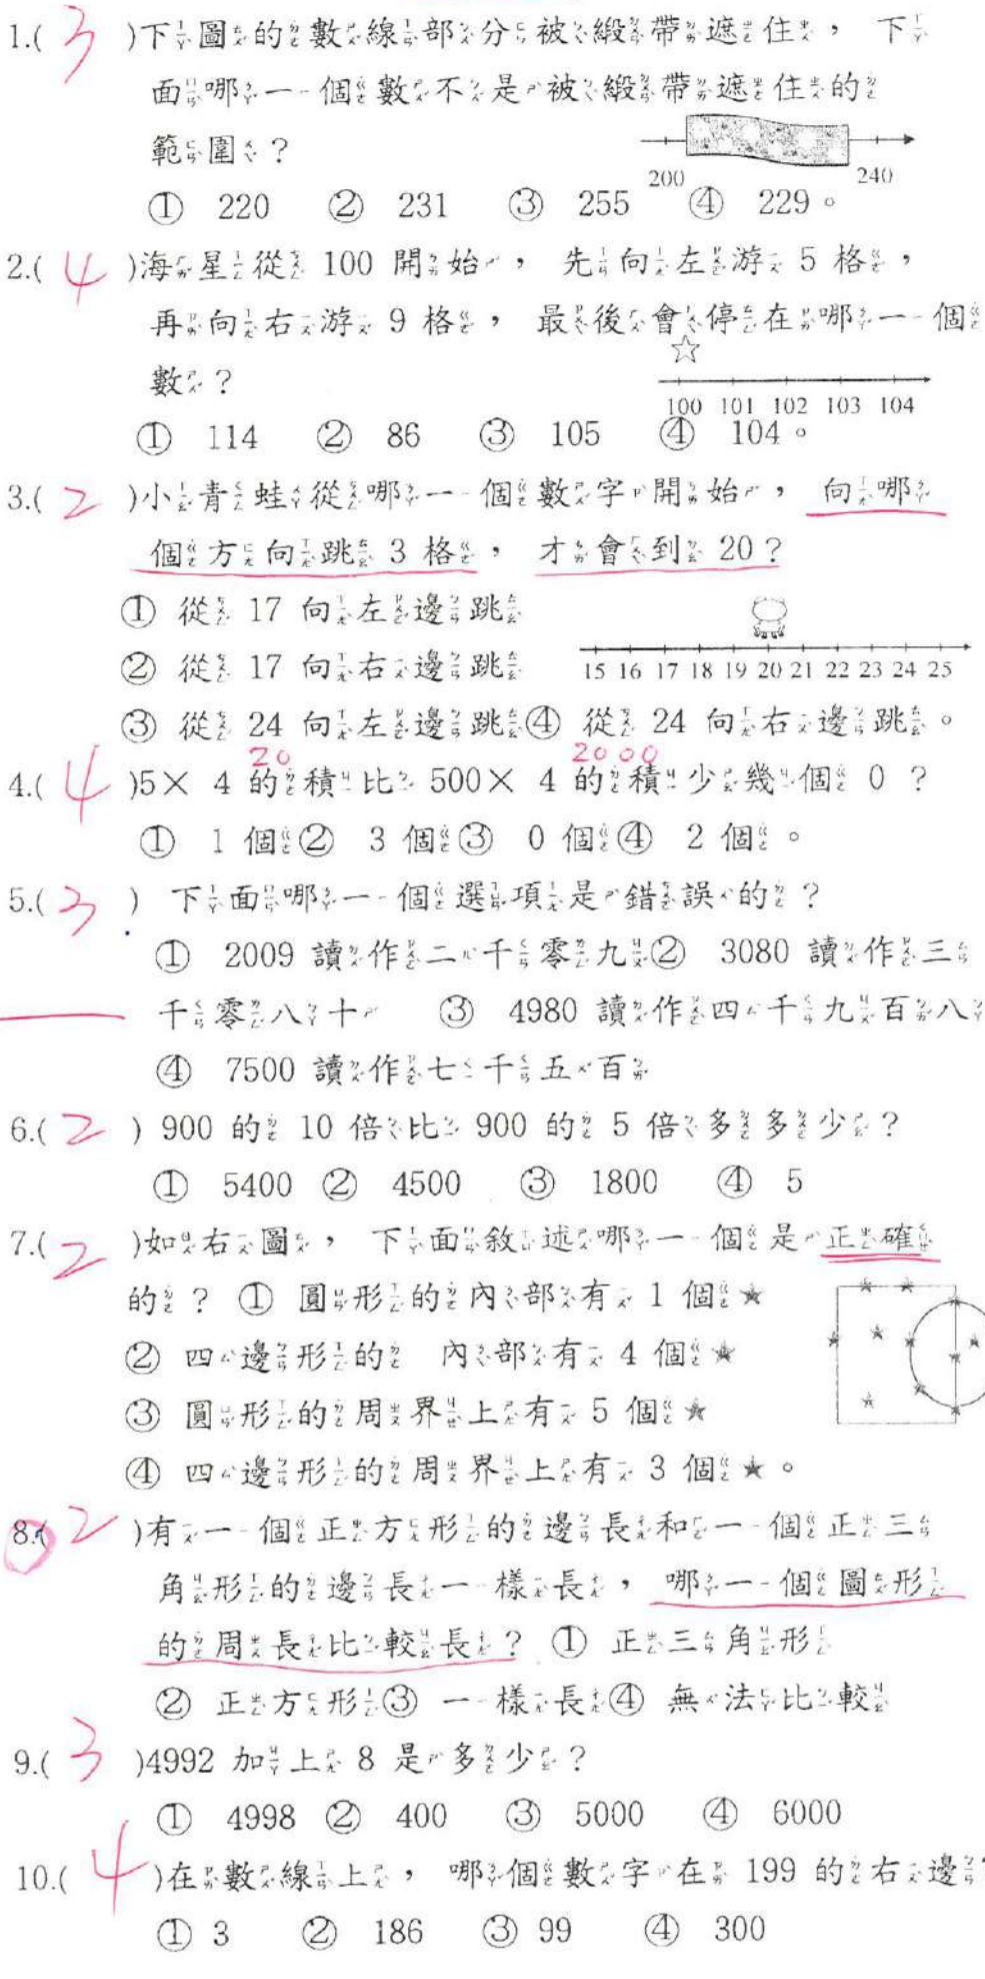 1.( 3 )下圖的數線部分被緞帶遮住，下
面哪一個數不是被緞帶遮住的
範圍？
200 240
① 220 ② 231 ③ 255 ④ 229。
2.( 4 )海星從 100 開始，先向左游 5 格，
再向右游 9 格，最後會停在哪一個
數？
100 101 102 103 104
① 114 ② 86 ③ 105 ④ 104。
3.( 2 )小青蛙從哪一個數字開始，向哪
個方向跳 3 格，才會到 20？
① 從 17 向左邊跳
② 從 17 向右邊跳
15 16 17 18 19 20 21 22 23 24 25
③ 從 24 向左邊跳④ 從 24 向右邊跳。
20 2000
4.( 4 )5× 4 的積比 500× 4 的積少幾個 0 ？
① 1 個② 3 個③ 0 個④ 2 個。
5.( 3 ) 下面哪一個選項是錯誤的？
① 2009 讀作二千零九② 3080 讀作三
千零八十 ③ 4980 讀作四千九百八
④ 7500 讀作七千五百
6.( 2 ) 900 的 10 倍比 900 的 5 倍多多少？
① 5400 ② 4500 ③ 1800 ④ 5
7.( 2 )如右圖，下面敘述哪一個是正確
的？ ① 圓形的內部有 1 個★
② 四邊形的 內部有 4 個★
③ 圓形的周界上有 5 個★
④ 四邊形的周界上有 3 個★。
8.( 2 )有一個正方形的邊長和一個正三
角形的邊長一樣長，哪一個圖形
的周長比較長？ ① 正三角形
② 正方形③ 一樣長④ 無法比較
9.( 3 )4992 加上 8 是多少？
① 4998 ② 400 ③ 5000 ④ 6000
10.( 4 )在數線上，哪個數字在 199 的右邊
① 3 ② 186 ③ 99 ④ 300